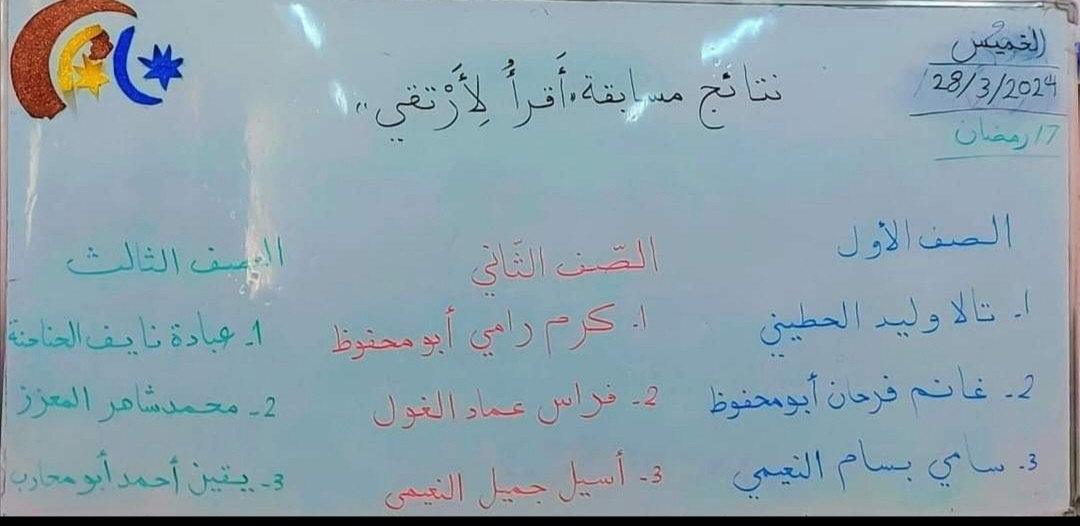 الخميس
28/3/2024
17 رمضان
نتائج مسابقة "أَقرأُ لِأَرْتقي"
الصف الأول
1. تالا وليد الحطيني
2- غانم فرحان أبو محفوظ
3- سامي بسام النعيمي
الصّف الثَّاني
1. كرم رامي أبو محفوظ
2- فراس عماد الغول
3- أسيل جميل النعيمي
الصف الثالث
1- عبادة نايف الحناحنة
2- محمد شاهر المعزز
3- يقين أحمد أبو محارب